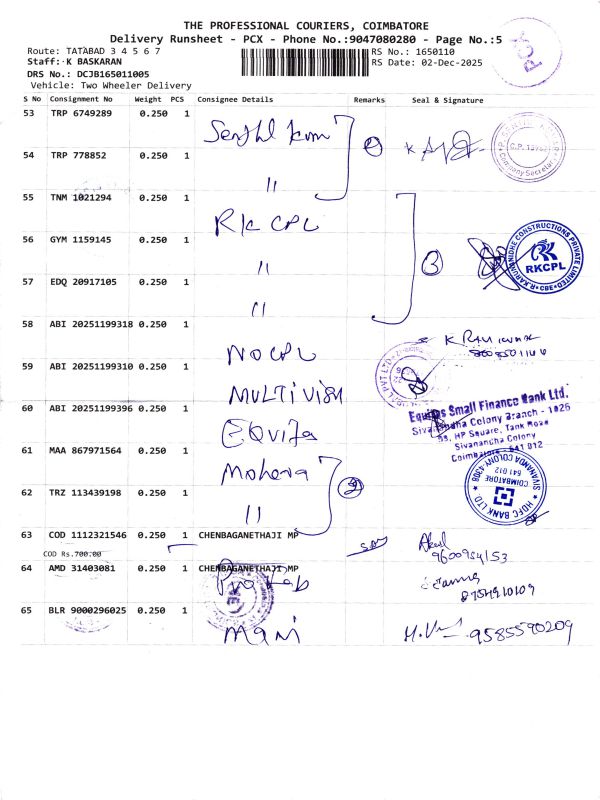 THE PROFESSIONAL COURIERS, COIMBATORE
Delivery Runsheet - PCX - Phone No.:9047080280 - Page No.:5
Route: TATABAD 3 4 5 6 7
RS No.: 1650110
Staff: K BASKARAN
RS Date: 02-Dec-2025
DRS No.: DCJB165011005
Vehicle: Two Wheeler Delivery
S No Consignment No Weight PCS Consignee Details Remarks Seal & Signature
53 TRP 6749289 0.250 1
54 TRP 778852 0.250 1
"
C.P. 13762
Company Secretary
55 TNM 1021294 0.250 1 RK CPL
56 GYM 1159145 0.250 1
"
R.KARUNANIDHE CONSTRUCTIONS PRIVATE LIMITED
RKCPL
CBE
57 EDQ 20917105 0.250 1
"
58 ABI 20251199318 0.250 1 NOCPL
59 ABI 20251199310 0.250 1 MULTIVISN
60 ABI 20251199396 0.250 1 EQUITA
Equitas Small Finance Bank Ltd.
Sivanandha Colony Branch - 1026
HP Square, Tank Road
Sivanancha Colony
Coimbatore - 641 012
61 MAA 867971564 0.250 1
62 TRZ 113439198 0.250 1
"
HDFC BANK LTD
SIVANANDA COLONY-4308
COIMBATORE
641 012
63 COD 1112321546 0.250 1 CHENBAGANETHAJI MP
COD Rs.700.00
9600954153
64 AMD 31403081 0.250 1 CHENBAGANETHAJI MP
Pratab
65 BLR 9000296025 0.250 1 mani
9585590209